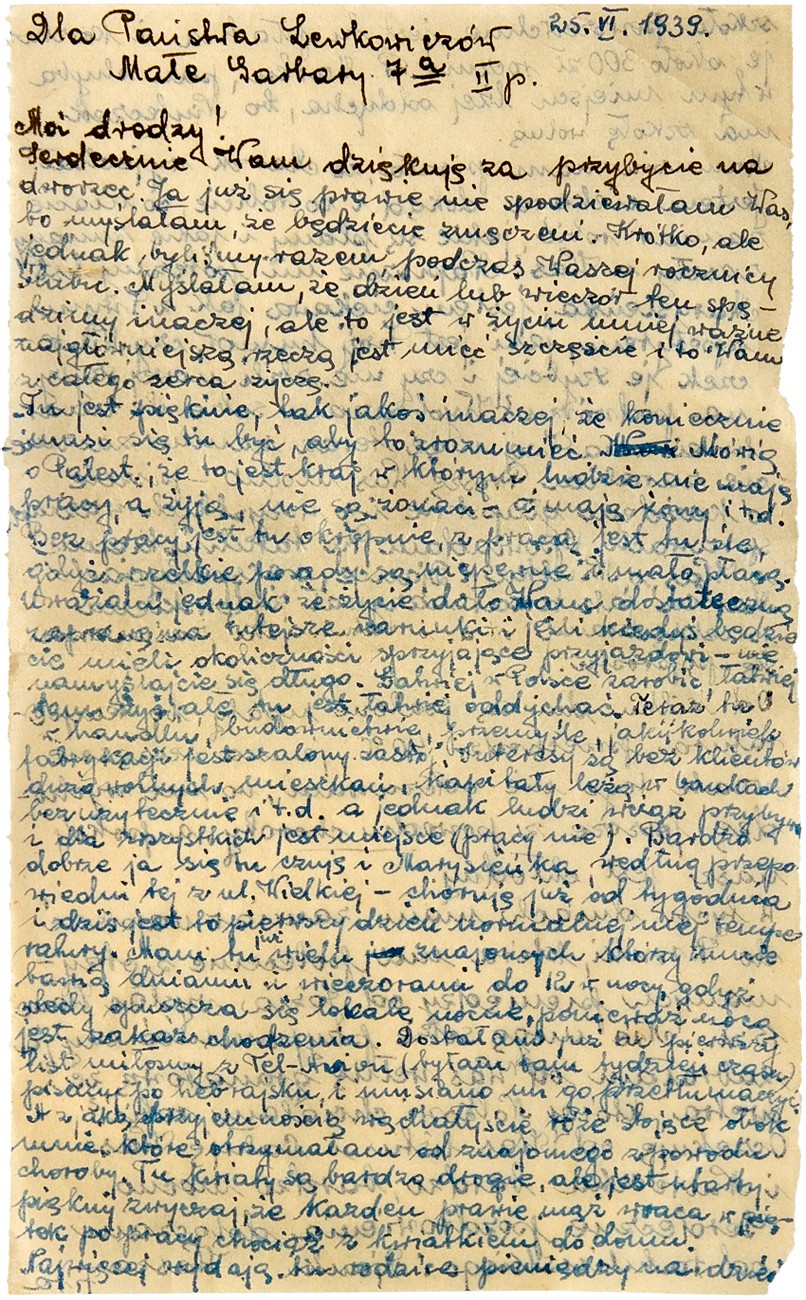 Dla Państwa Lewkowiczów 25.VI.1939.
Małe Garbary 7a II p.
Moi drodzy!
Serdecznie Wam dziękuję za przybycie na
dworzec Ja już się prawie nie spodziewałam Was,
bo myślałam, że będziecie zmęczeni. Krótko, ale
jednak byliśmy razem podczas Waszej rocznicy
ślubu. Myślałam, że dzień lub wieczór ten spę-
dzimy inaczej, ale to jest w życiu mniej ważne
najgłówniejszą rzeczą jest mieć szczęście i to Wam
z całego serca życzę.
Tu jest pięknie, tak jakoś inaczej, że koniecznie
musi się tu być, aby to zrozumieć. Mówią
o Palest., że to jest kraj w którym ludzie nie mają
pracy, a żyją, nie są żonaci - a mają żony i t.d.
Bez pracy jest tu okropnie, z pracą jest tu źle,
gdyż wszelkie posady są niepewne i mało płacą.
Uważam jednak że życie dało Wam dostateczną
na tutejsze warunki i jeśli kiedyś będzie
cie mieli okoliczności sprzyjające przyjazdowi - nie
namyślajcie się długo. Łatwiej w Polsce zarobić łatwiej
tam żyć ale tu jest łatwiej oddychać. Teraz tu
w handlu, budownictwie, przemyśle, jakijkolwiek
fabrykacji jest szalony zastój. Interesy są bez klientów
dużo wolnych mieszkań, kapitały leżą w bankach
bezużytecznie i t.d. a jednak ludzi wciąż przybywa
i dla wszystkich jest miejsce (pracy nie). Bardzo
dobrze ja się tu czuję i Marysieńka według przepo
wiedni tej z ul. Wielkiej - choruję już od tygodnia
i dziś jest to pierwszy dzień normalnej mej tempe
ratury. Mam tu już wielu znajomych którzy mnie
bawią dniami i wieczorami do 12 w nocy gdyż
wtedy opuszcza się lokale nocne, ponieważ nocą
jest zakaz chodzenia. Dostałam już tu pierwszy
list miłosny z Tel-Awiwu (byłam tam tydzień czasu)
pisany po hebrajsku, i musiano mi go przetłumaczyć.
A z jaką przyjemnością wąchałyście róże stojące obok
mnie, które otrzymałam od znajomego z powodu
choroby. Tu kwiaty są bardzo drogie, ale jest utarty
piękny zwyczaj, że każden prawie mąż wraca w pią-
tek po pracy chociaż z kwiatkiem do domu.
Najwięcej wydają tu rodzice pieniędzy na dzieci